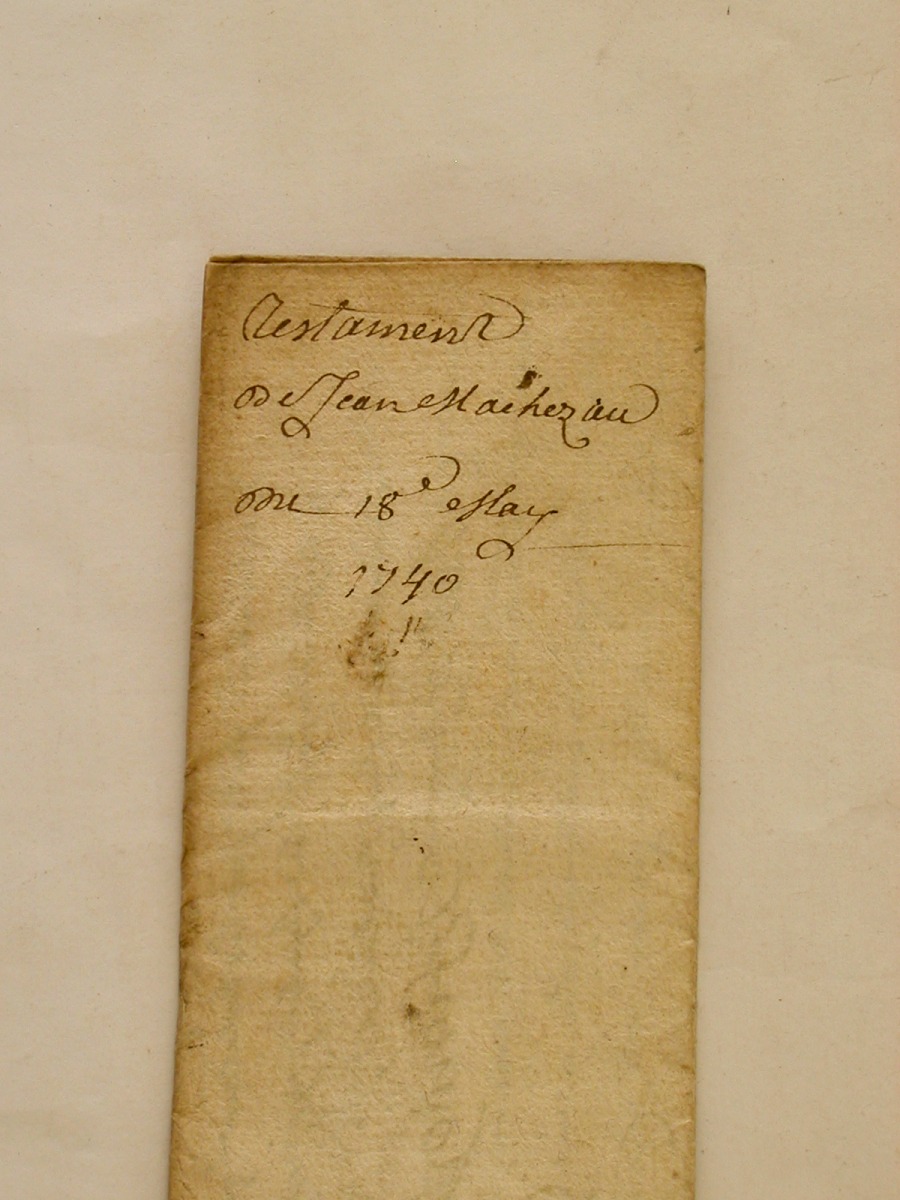 Testament
de Jean Machezau
du 18e May
1740